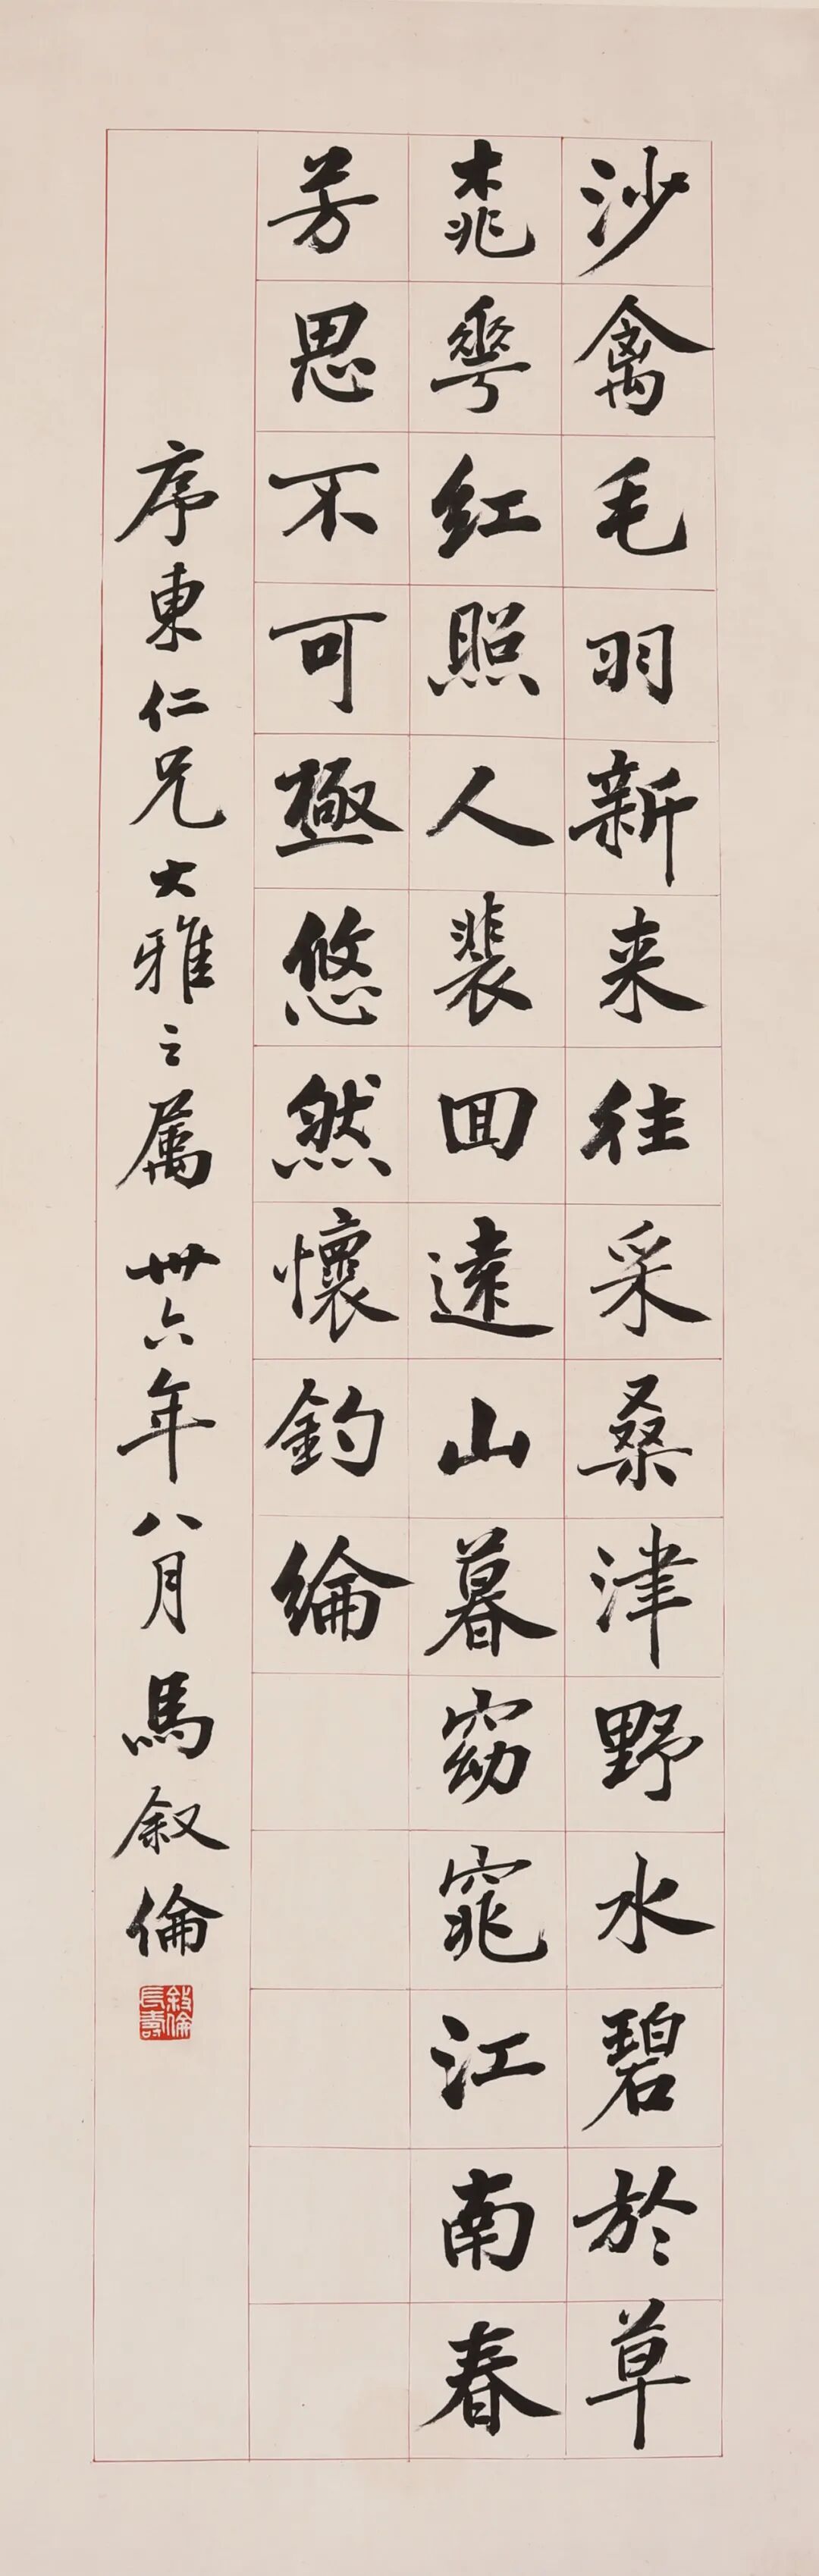 沙禽毛羽新来往采桑津野水碧於草
桃華红照人裴回遠山暮窈窕江南春
芳思不可極悠然懷釣綸
序東仁兄大雅之属 卅六年八月 馬叙倫
敘倫長壽